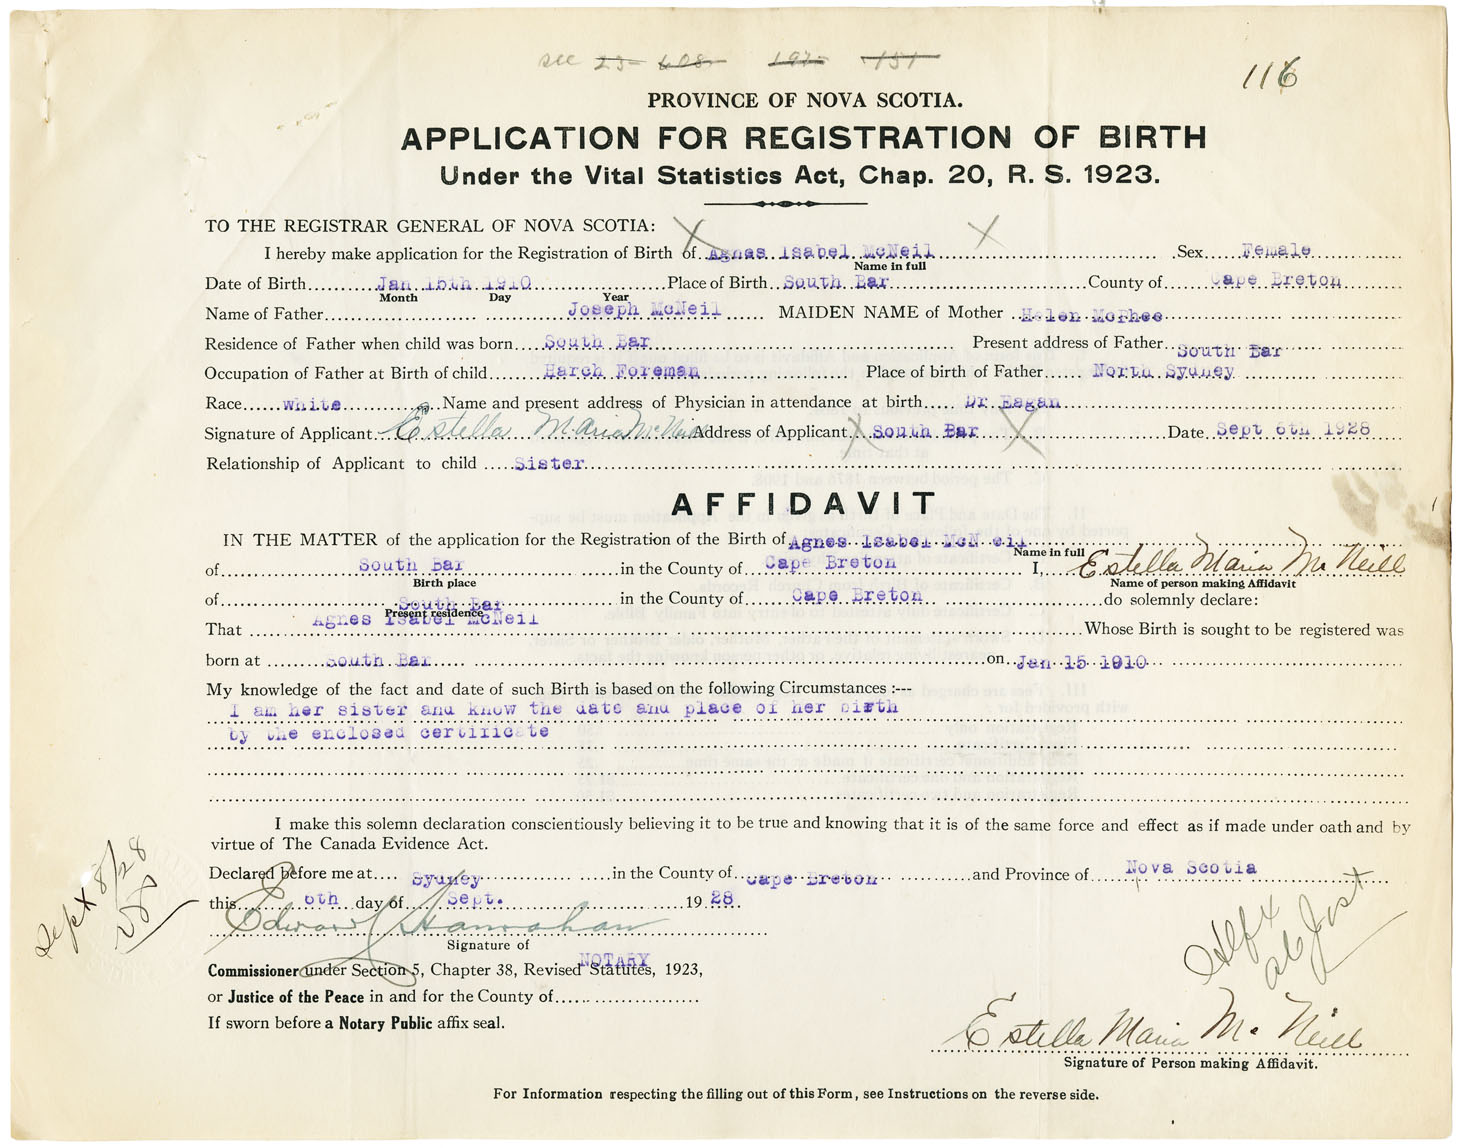 see 23- 608- 197- -151
116
PROVINCE OF NOVA SCOTIA.
APPLICATION FOR REGISTRATION OF BIRTH
Under the Vital Statistics Act, Chap. 20, R. S. 1923.
TO THE REGISTRAR GENERAL OF NOVA SCOTIA:
I hereby make application for the Registration of Birth of Agnes Isabel McNeil Sex Female
Name in full
Date of Birth Jan 15th 1910 Place of Birth South Bar County of Cape Breton
Month Day Year
Name of Father Joseph McNeil MAIDEN NAME of Mother Helen McPhee
Residence of Father when child was born South Bar Present address of Father South Bar
Occupation of Father at Birth of child Harch Foreman Place of birth of Father North Sydney
Race white Name and present address of Physician in attendance at birth Dr Eagan
Signature of Applicant Estella Maria McNeill Address of Applicant X South Bar X Date Sept 6th 1928
Relationship of Applicant to child Sister
AFFIDAVIT
IN THE MATTER of the application for the Registration of the Birth of Agnes Isabel McN eil
Name in full
of South Bar in the County of Cape Breton I, Estella Maria McNeill
Birth place Name of person making Affidavit
of South Bar in the County of Cape Breton do solemnly declare:
Present residence
That Agnes Isabel McNeil Whose Birth is sought to be registered was
born at South Bar on Jan 15 1910
My knowledge of the fact and date of such Birth is based on the following Circumstances :---
I am her sister and know the date and place of her birth
by the enclosed certificate
I make this solemn declaration conscientiously believing it to be true and knowing that it is of the same force and effect as if made under oath and by
virtue of The Canada Evidence Act.
Declared before me at Sydney in the County of Cape Breton and Province of Nova Scotia
this 6th day of Sept. 19 28
Edward J Hanrahan
Signature of
NOTARY
Commissioner under Section 5, Chapter 38, Revised Statutes, 1923,
or Justice of the Peace in and for the County of
If sworn before a Notary Public affix seal.
Sept 8/28
Estella Maria McNeill
Signature of Person making Affidavit.
For Information respecting the filling out of this Form, see Instructions on the reverse side.